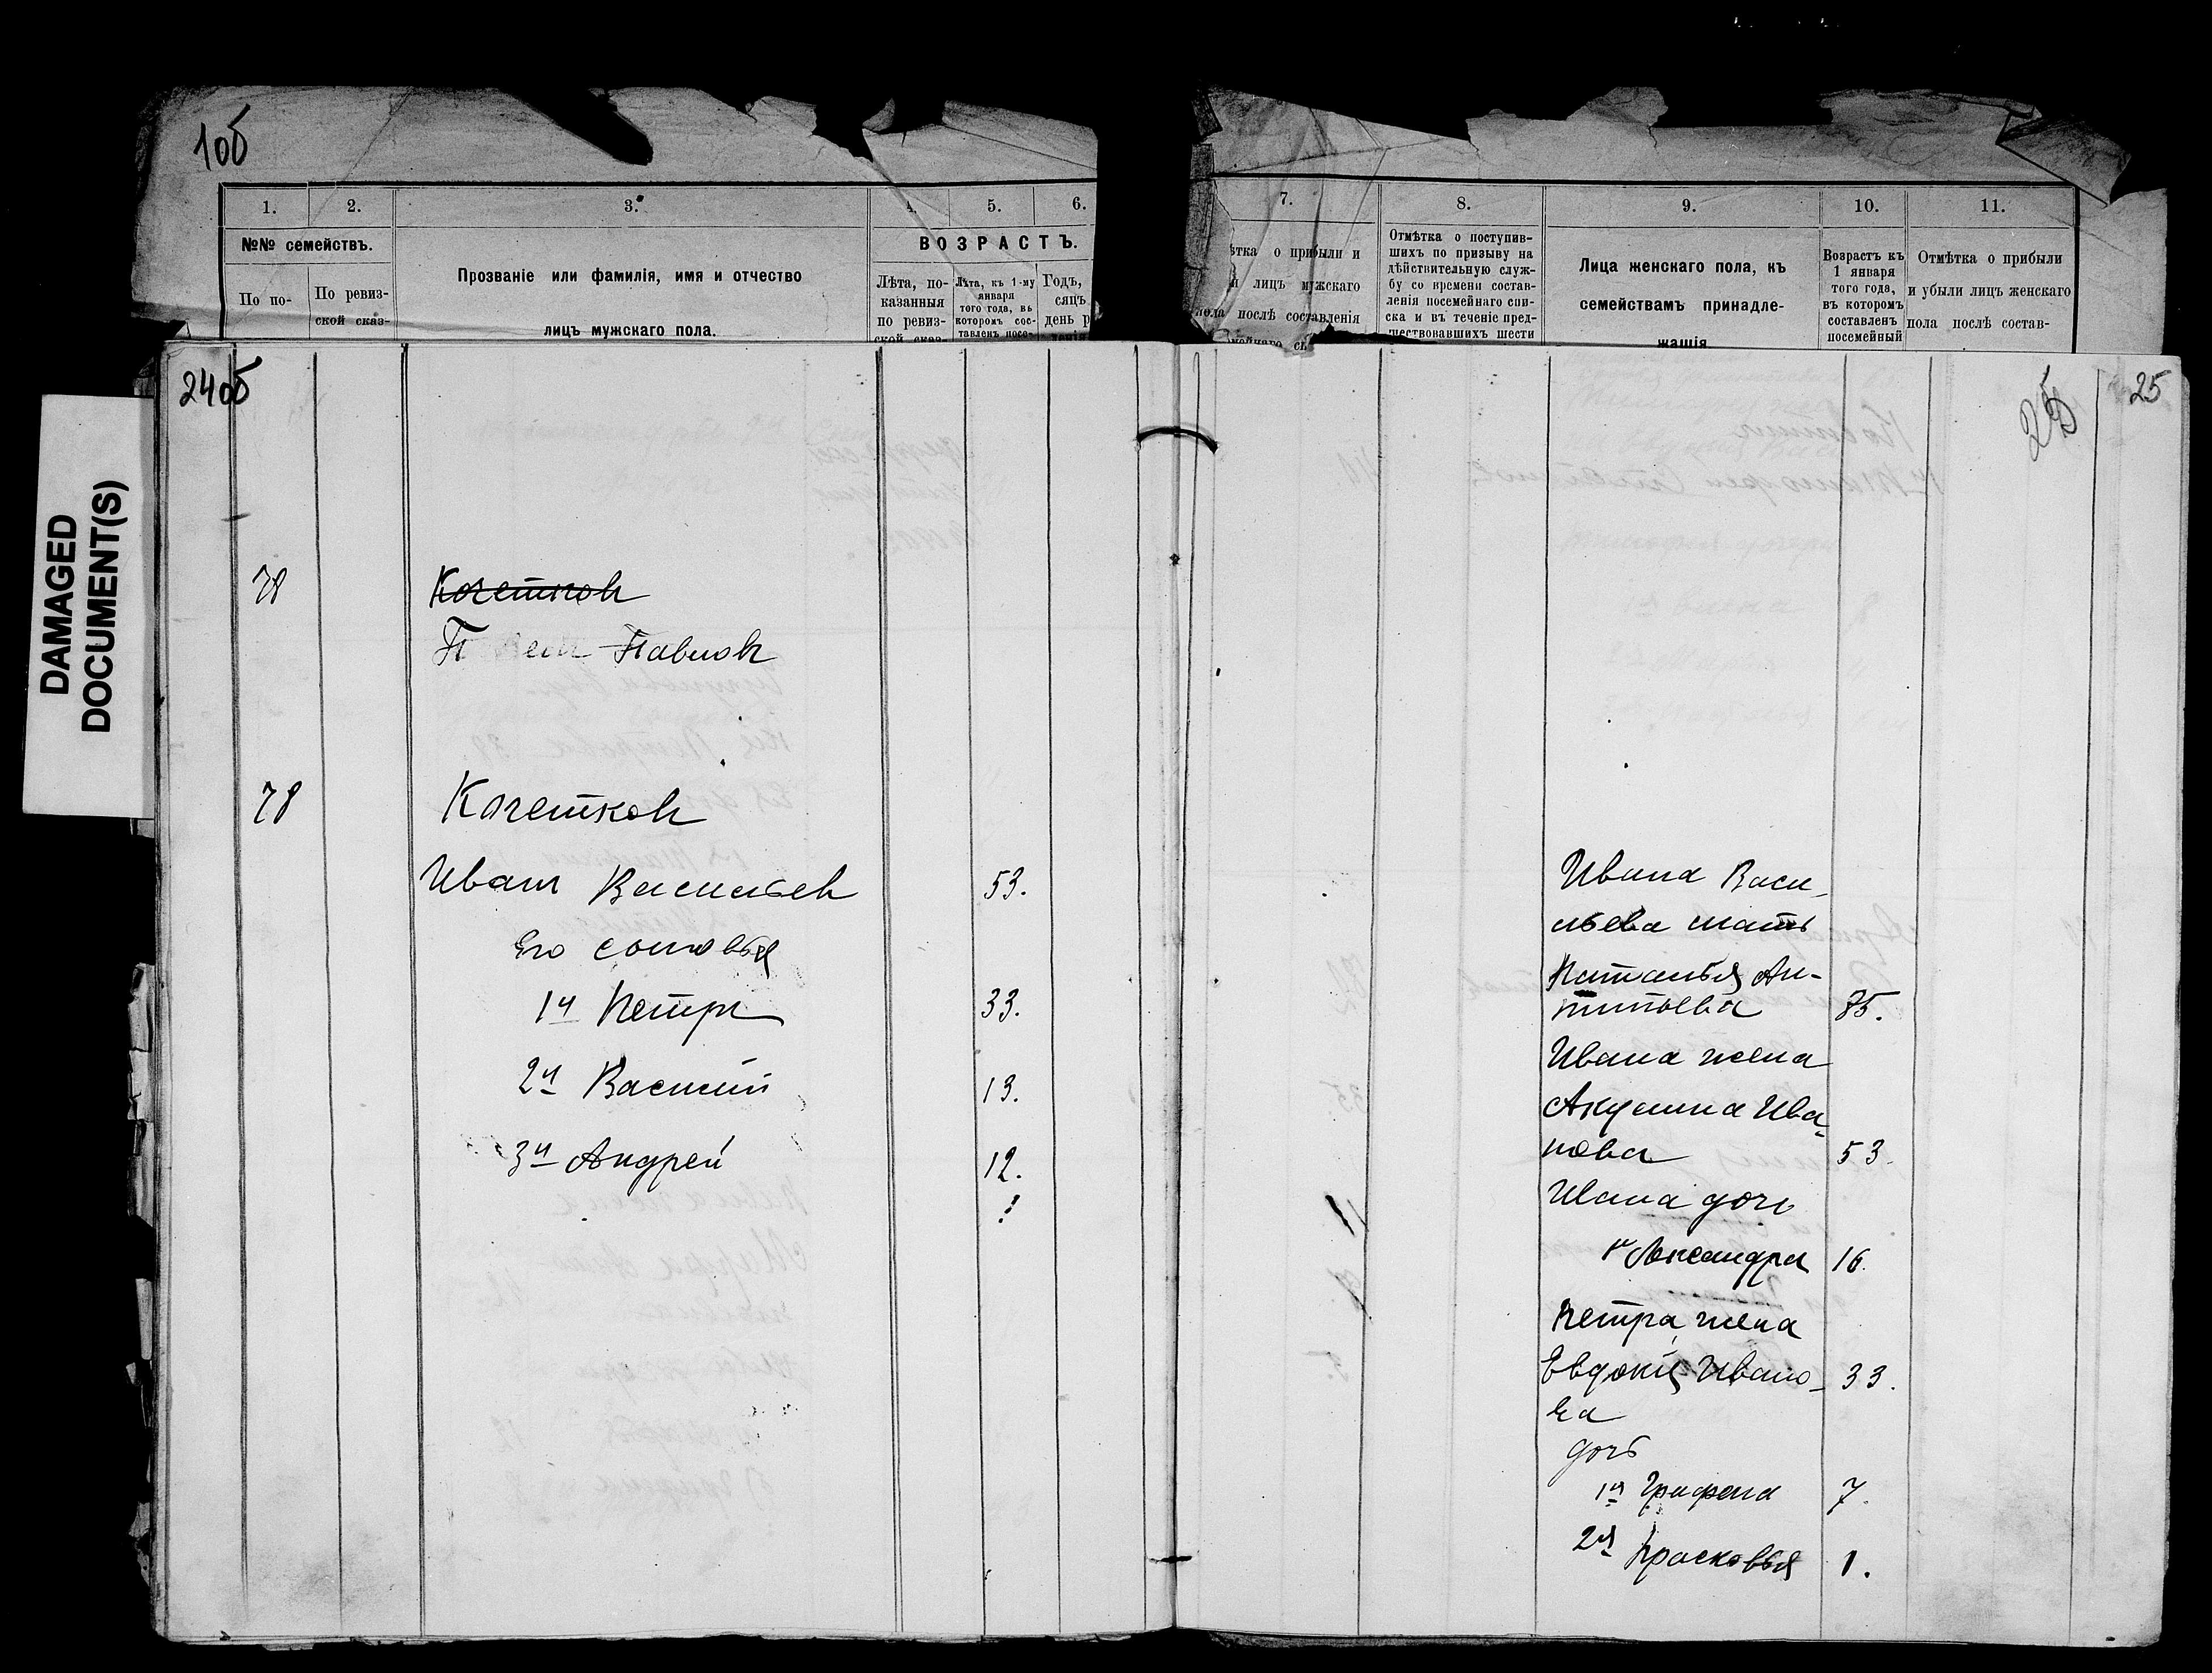 10б
1. 2. 3. 4. 5. 6.
№№ семействъ.
ВОЗРАСТЪ.
По по-
По ревиз-
ской сказ-
Прозваніе или фамилія, имя и отчество
лицъ мужскаго пола.
Лѣта, по-
казанныя
по ревиз-
ской сказ-
Лѣта, къ 1-му
января
того года, въ
которомъ сос-
тавленъ посе-
Годъ,
сяцъ
день р
7. 8. 9. 10. 11.
ѣтка о прибыли и
и лицъ мужскаго
пола послѣ составленія
мейнаго сп
Отмѣтка о поступив-
шихъ по призыву на
дѣйствительную служ-
бу со времени состав-
ленія посемейнаго спи-
ска и въ теченіе пред-
шествовавшихъ шести
Лица женскаго пола, къ
семействамъ принадле-
жащія
Возрастъ къ
1 января
того года,
въ которомъ
составленъ
посемейный
Отмѣтка о прибыли
и убыли лицъ женскаго
пола послѣ состав-
DAMAGED
DOCUMENT(S)
24об
78 Кочетковъ
Павловъ
78 Кочетковъ
Иванъ Васильевъ 53.
Его сыновья
1й Петръ 33.
2й Василий 13.
3й Андрей 12.
25
25
Ивана Васи-
льева мать
Наталья Ан-
типьева 85.
Ивана жена
Акулина Ива-
нова 53.
Ивана дочь
Александра 16.
Петра жена
Евдокія Ивано- 33.
ва
дочь
1я Графена 7.
2я Прасковья 1.